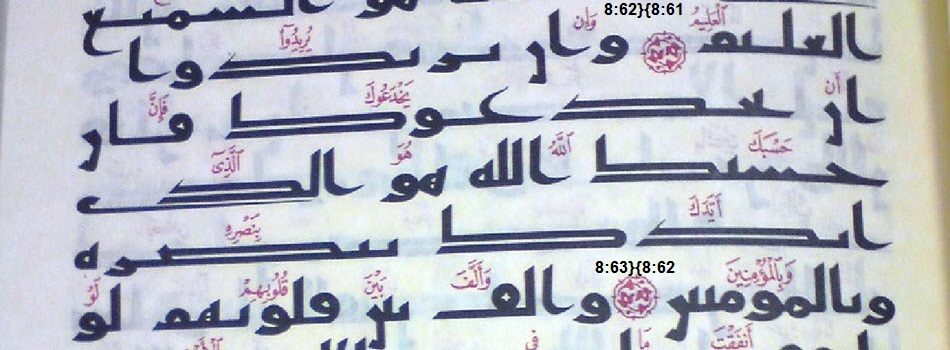 هو السميع
8:62}{8:61
ٱلْعَلِيمُ وَإِن يُرِيدُوٓا۟
العليم وان يريدوا
أَن يَخْدَعُوكَ فَإِنَّ
ان يخدعوك فان
حَسْبَكَ ٱللَّهُ هُوَ ٱلَّذِىٓ
حسبك الله هو الذي
أَيَّدَكَ بِنَصْرِهِۦ
ايدك بنصره
8:63}{8:62
وَبِٱلْمُؤْمِنِينَ وَأَلَّفَ بَيْنَ قُلُوبِهِمْ لَوْ
وبالمومنين والف بين قلوبهم لو
أَنفَقْتَ مَا فِى